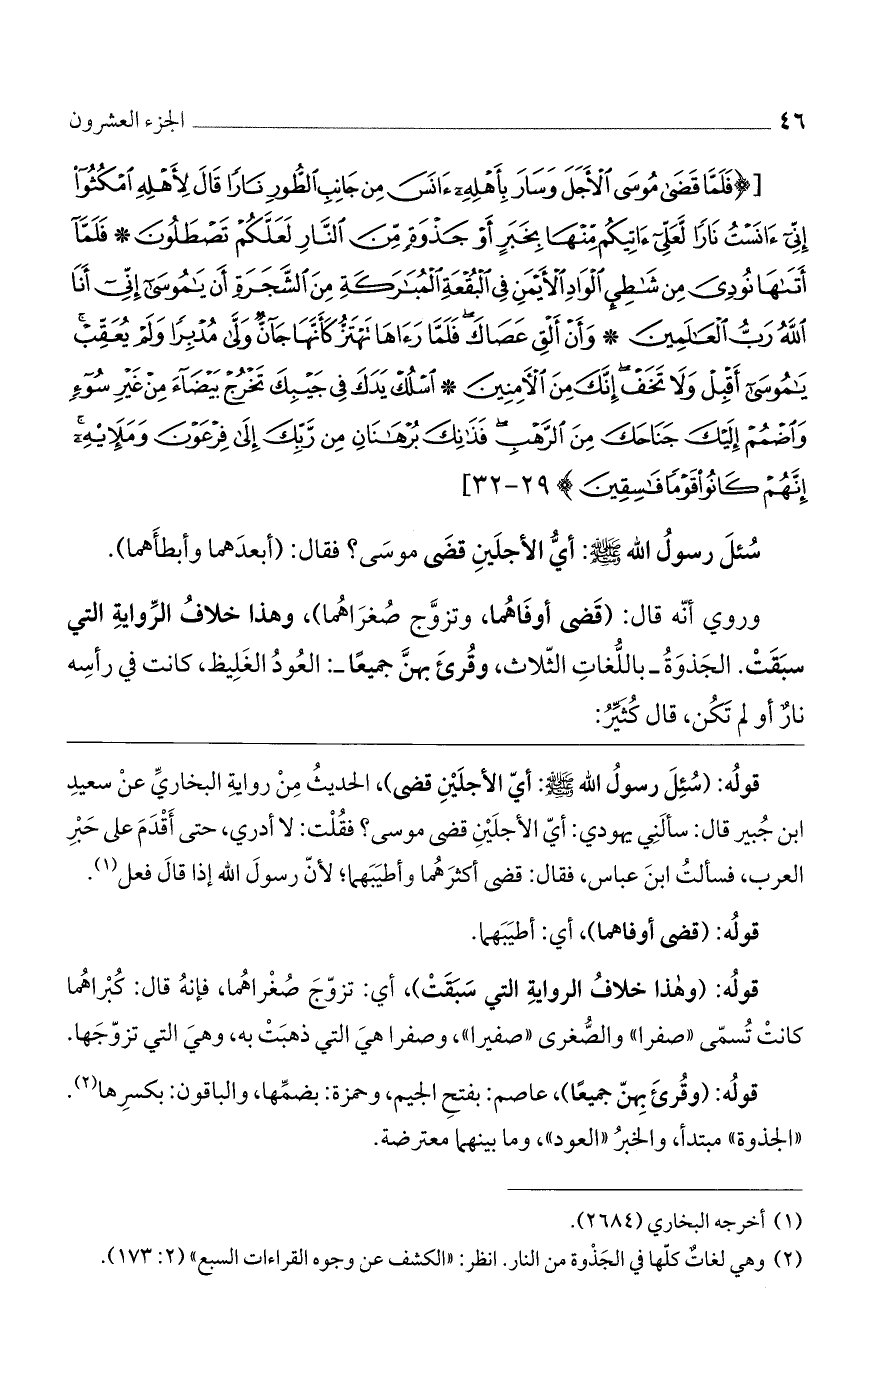 ٤٦ ــــــــــــــــــــ الجزء العشرون
[﴿فَلَمَّا قَضَىٰ مُوسَى ٱلْأَجَلَ وَسَارَ بِأَهْلِهِۦٓ ءَانَسَ مِن جَانِبِ ٱلطُّورِ نَارًا قَالَ لِأَهْلِهِ ٱمْكُثُوٓا۟
إِنِّىٓ ءَانَسْتُ نَارًا لَّعَلِّىٓ ءَاتِيكُم مِّنْهَا بِخَبَرٍ أَوْ جَذْوَةٍ مِّنَ ٱلنَّارِ لَعَلَّكُمْ تَصْطَلُونَ * فَلَمَّآ
أَتَىٰهَا نُودِىَ مِن شَٰطِئِ ٱلْوَادِ ٱلْأَيْمَنِ فِى ٱلْبُقْعَةِ ٱلْمُبَٰرَكَةِ مِنَ ٱلشَّجَرَةِ أَن يَٰمُوسَىٰٓ إِنِّىٓ أَنَا
ٱللَّهُ رَبُّ ٱلْعَٰلَمِينَ * وَأَنْ أَلْقِ عَصَاكَ ۖ فَلَمَّا رَءَاهَا تَهْتَزُّ كَأَنَّهَا جَآنٌّ وَلَّىٰ مُدْبِرًا وَلَمْ يُعَقِّبْ ۚ
يَٰمُوسَىٰٓ أَقْبِلْ وَلَا تَخَفْ ۖ إِنَّكَ مِنَ ٱلْءَامِنِينَ * ٱسْلُكْ يَدَكَ فِى جَيْبِكَ تَخْرُجْ بَيْضَآءَ مِنْ غَيْرِ سُوٓءٍ
وَٱضْمُمْ إِلَيْكَ جَنَاحَكَ مِنَ ٱلرَّهْبِ ۖ فَذَٰنِكَ بُرْهَٰنَانِ مِن رَّبِّكَ إِلَىٰ فِرْعَوْنَ وَمَلَإِي۟هِۦٓ ۚ
إِنَّهُمْ كَانُوا۟ قَوْمًا فَٰسِقِينَ﴾ ٢٩-٣٢]
سُئلَ رسولُ الله ﷺ: أيُّ الأجلَينِ قضَى موسَى؟ فقال: (أبعدَهما وأبطأَهما).
وروي أنّه قال: (قَضى أوفَاهُما، وتزوَّج صُغرَاهُما)، وهذا خلافُ الرِّوايةِ التي
سبَقَتْ. الجَذوَةُ ـ باللُّغاتِ الثّلاث، وقُرئَ بهنَّ جميعًا ـ: العُودُ الغَلِيظ، كانت في رأسِه
نارٌ أو لم تَكُن، قال كُثَيِّرٌ:
قولُه: (سُئِلَ رسولُ الله ﷺ: أيّ الأجلَيْنِ قضى)، الحديثُ مِنْ روايةِ البخاريِّ عنْ سعيدِ
ابن جُبير قال: سألَنِي يهودي: أيّ الأجلَيْنِ قضى موسى؟ فقُلْت: لا أدري، حتى أقْدَمَ على حَبْرِ
العرب، فسألتُ ابنَ عباس، فقال: قضى أكثرَهُما وأطيَبَهما؛ لأنّ رسولَ الله إذا قالَ فعل(١).
قولُه: (قضى أوفاهما)، أي: أطيَبَهما.
قولُه: (وهٰذا خلافُ الروايةِ التي سَبَقَتْ)، أي: تزوّجَ صُغْراهُما، فإنهُ قال: كُبْراهُما
كانتْ تُسمّى «صفرا» والصُّغرى «صفيرا»، وصفرا هيَ التي ذهبَتْ به، وهيَ التي تزوّجَها.
قولُه: (وقُرئَ بِهنّ جميعًا)، عاصم: بفتحِ الجيم، وحمزة: بضمِّها، والباقون: بكسرِها(٢).
«الجذوة» مبتدأ، والخبرُ «العود»، وما بينهما معترضة.
(١) أخرجه البخاري (٢٦٨٤).
(٢) وهي لغاتٌ كلّها في الجَذْوة من النار. انظر: «الكشف عن وجوه القراءات السبع» (٢: ١٧٣).